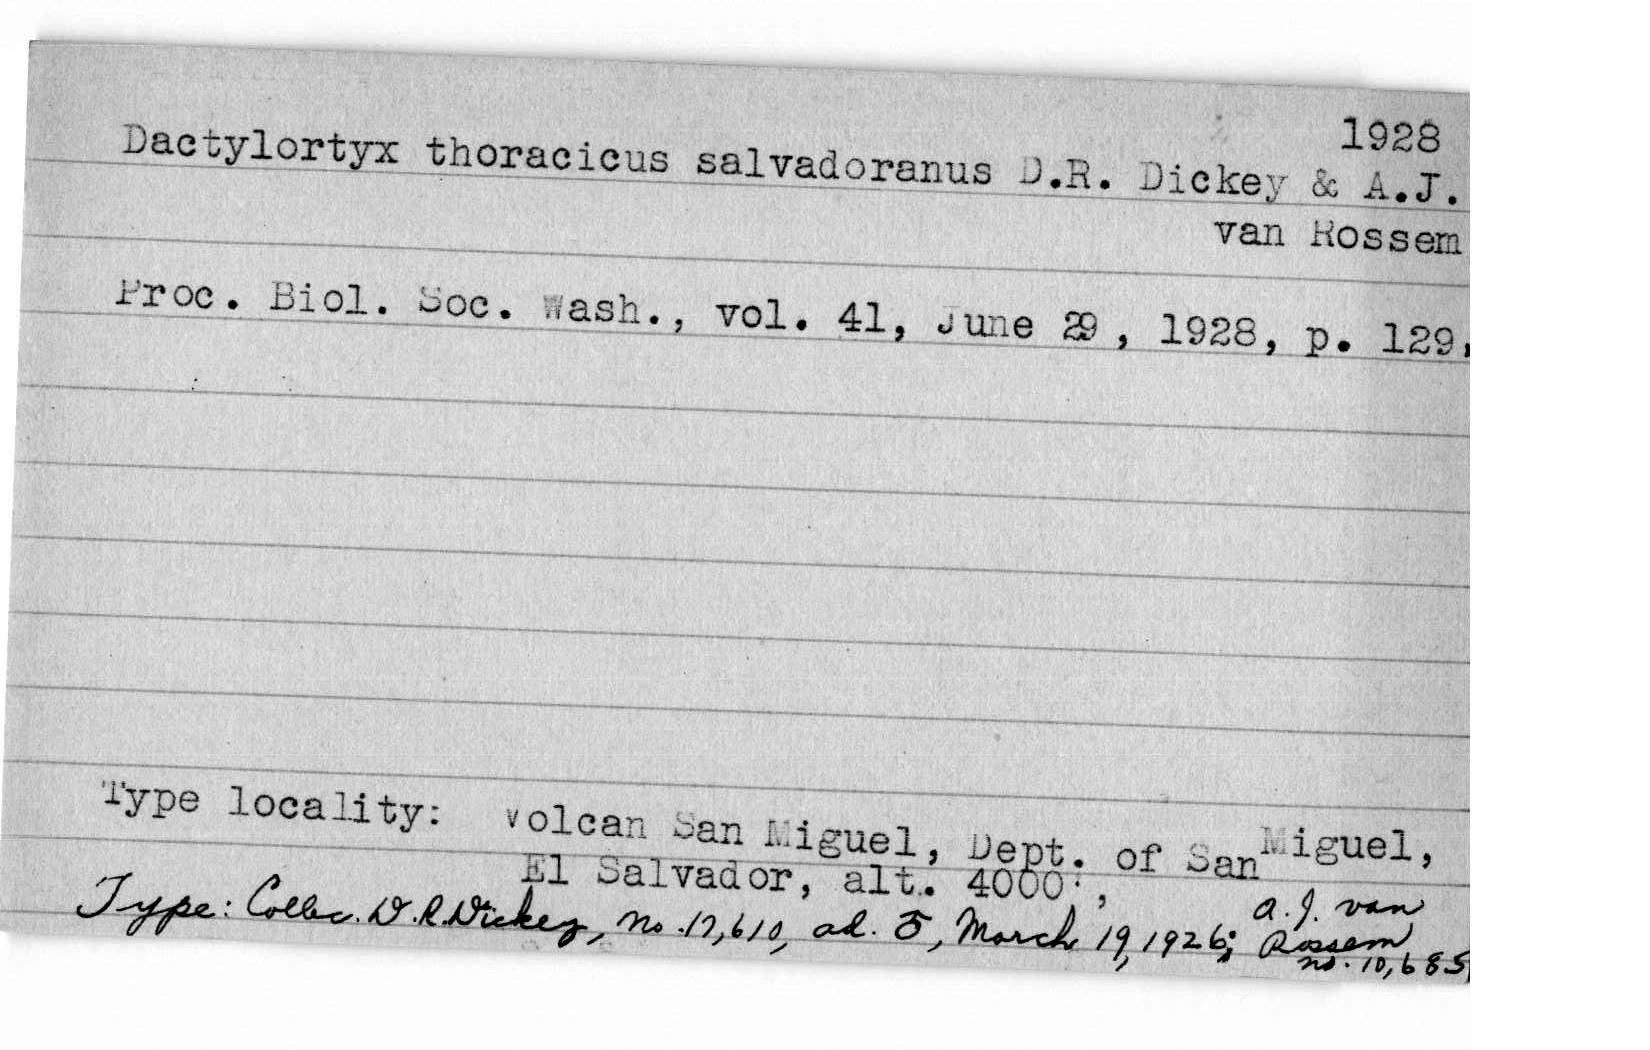 1928
Dactylortyx thoracicus salvadoranus D.R. Dickey & A.J.
van Rossem
Proc. Biol. Soc. Wash., vol. 41, June 29, 1928, p. 129,
Type locality: Volcan San Miguel, Dept. of San Miguel,
El Salvador, alt. 4000',
Type: Collec. D.R. Dickey, no. 17,610, ad. ♂, March 19, 1926; A.J. van
Rossem
no. 10,685,